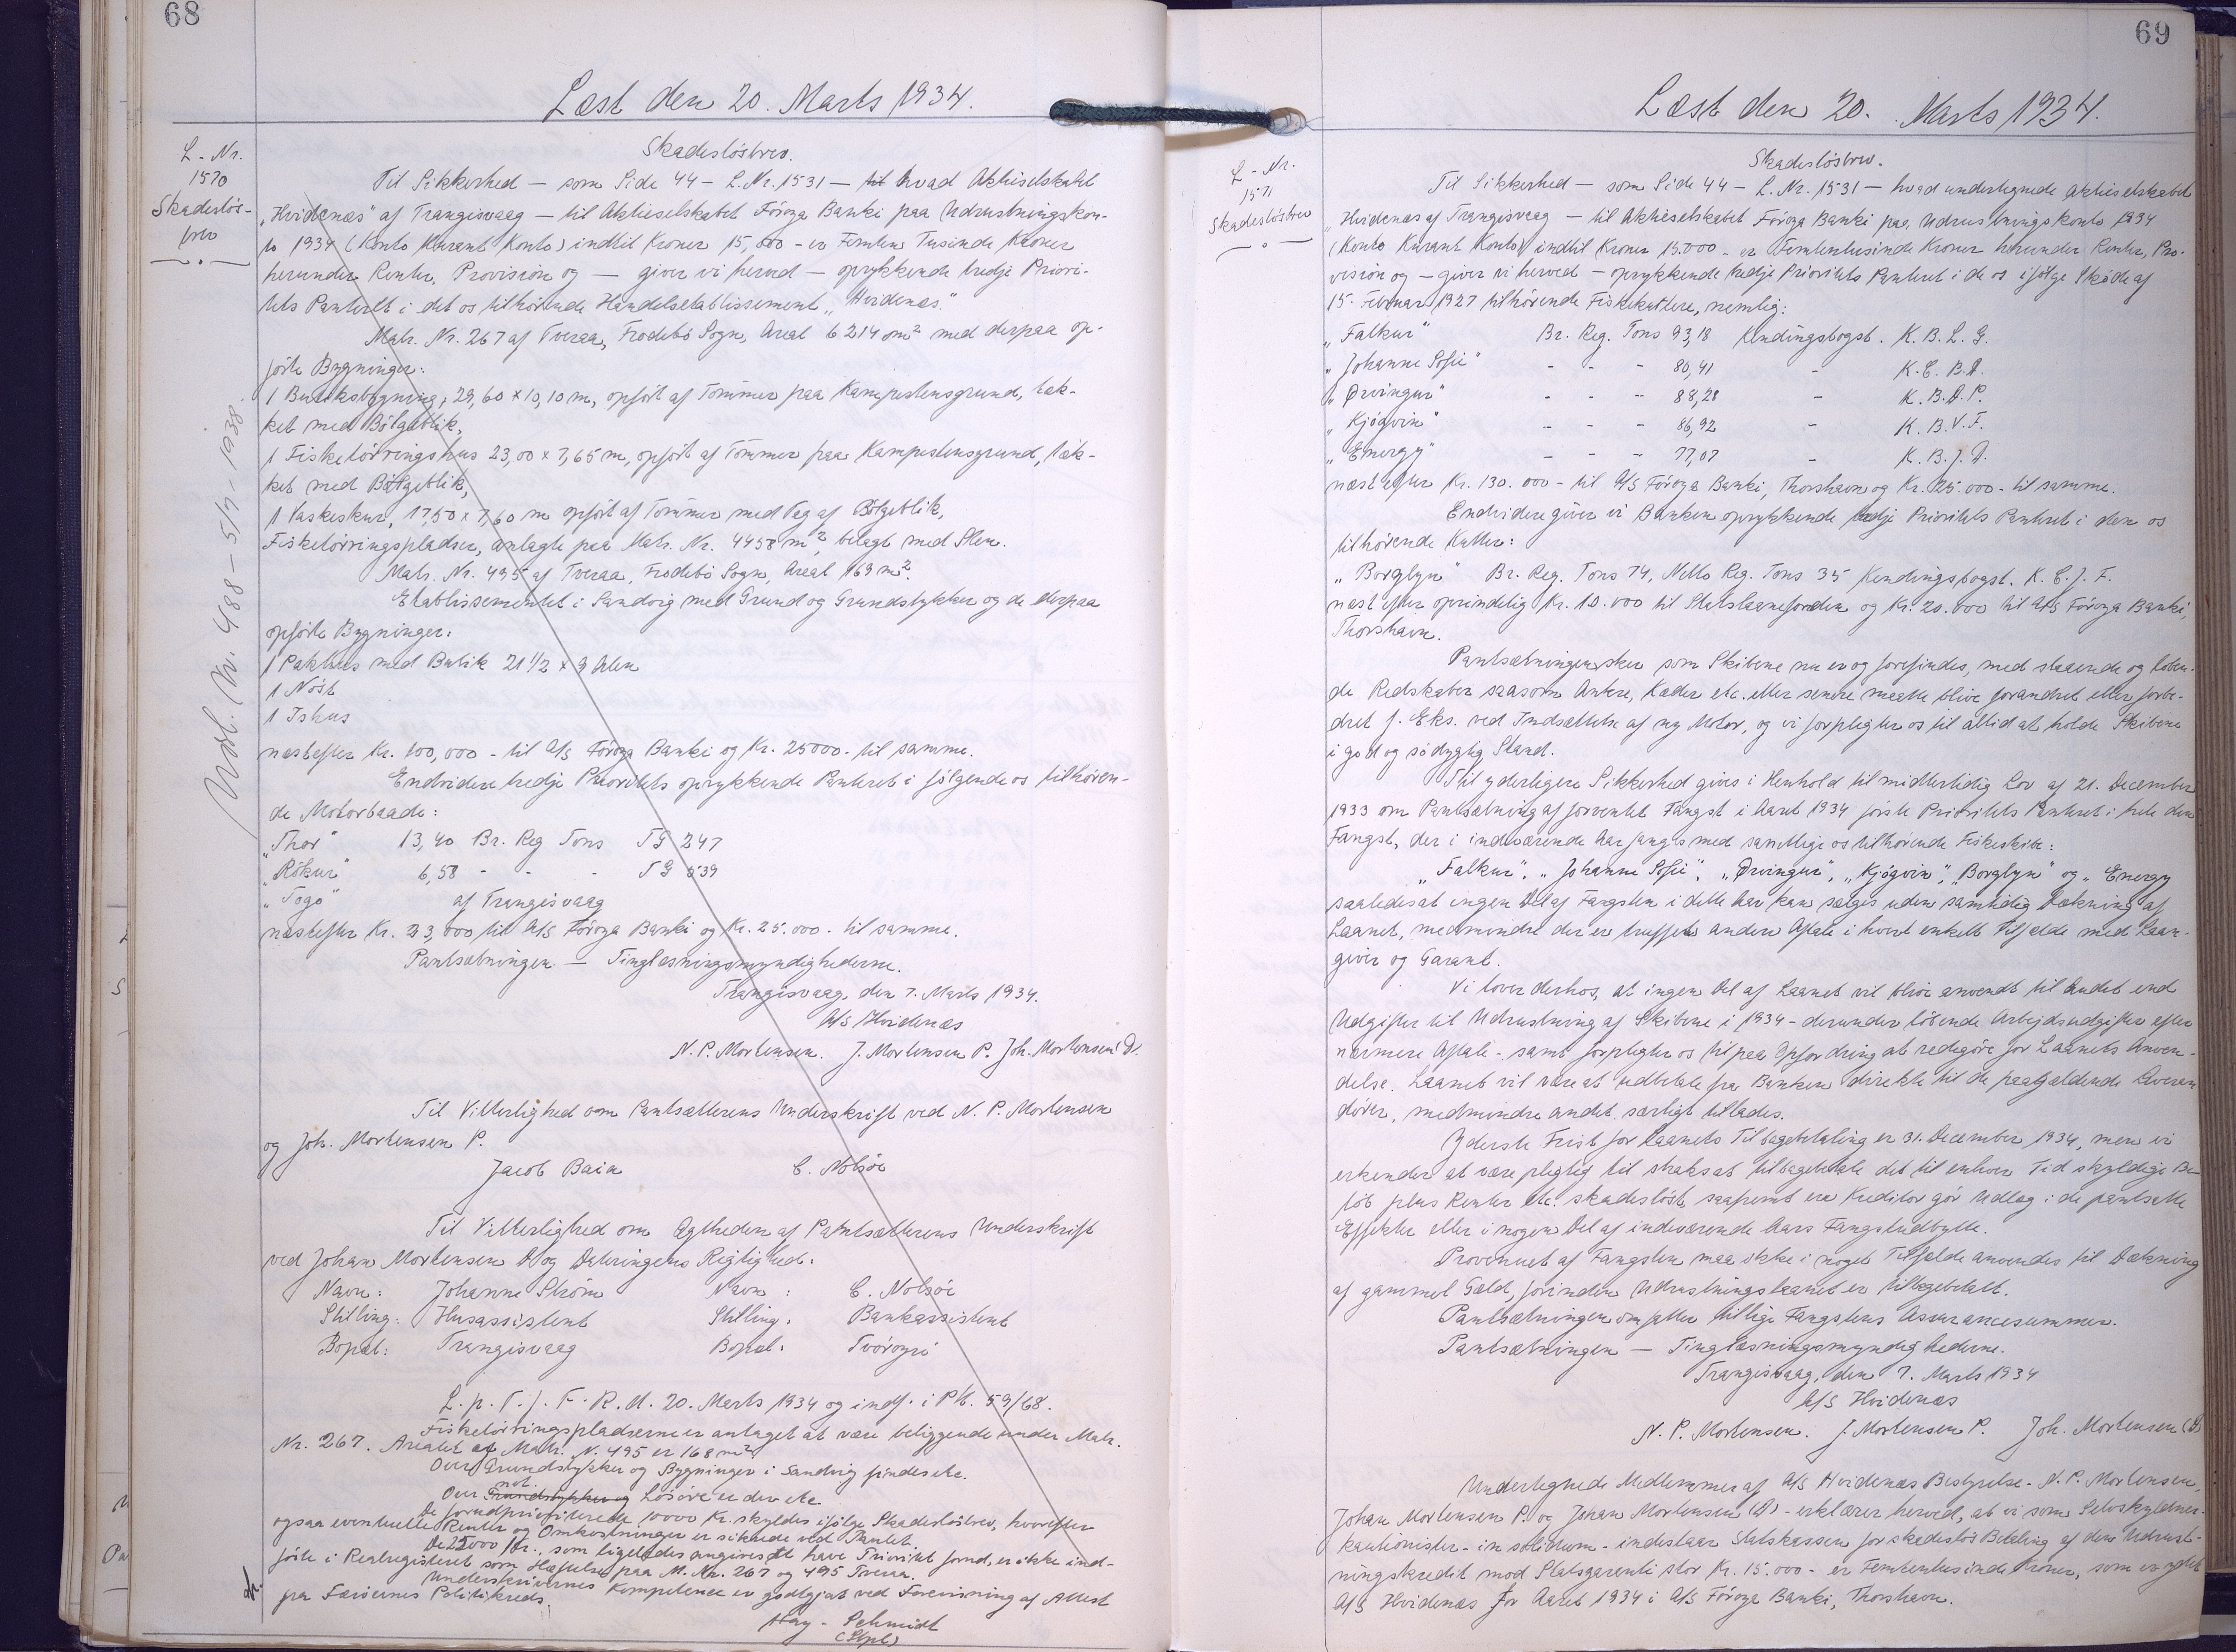 68
Læst den 20. Marts 1934.
L-Nr.
1570
Skadeslös-
brev
Udsl. Nr. 488 - 5/7 - 1938.
Skadeslösbrev.
Til Sikkerhed — som Side 44 - L.Nr. 1531 — til hvad Aktieselskabet
„Hvidenæs" af Trangisvaag — til Aktieselskabet Föroya Banki paa Udrustningskon-
to 1934 (Konto Kurant Konto) indtil Kroner 15,000 - er Femten Tusinde Kroner
herunder Renter, Provision og — giver vi herved — oprykkende tredje Priori-
tets Panteret i det os tilhörende Handelsetablissement „Hvidenæs."
Matr. Nr. 267 af Tveraa, Frodebö Sogn, Areal 6214 m² med derpaa op-
förte Bygninger:
1 Butiksbygning, 29,60 x 10,10 m, opfört af Tömmer paa Kampestensgrund, tæk-
ket med Bölgeblik,
1 Fisketörringshus 23,00 x 7,65 m, opfört af Tömmer paa Kampestensgrund, tæk-
ket med Bölgeblik,
1 Vaskeskur, 17,50 x 7,60 m opfört af Tömmer med Tag af Bölgeblik,
Fisketörringspladser, anlagte paa Matr. Nr. 4458 m², belagt med Sten.
Matr. Nr. 495 af Tveraa, Frodebö Sogn, Areal 169 m².
Etablissementet i Sandvig med Grund og Grundstykker og de derpaa
opförte Bygninger:
1 Pakhus med Butik 21 1/2 x 9 Alen
1 Nöst
1 Ishus
næstefter Kr. 100,000 - til A/S Föroya Banki og Kr. 25000 - til samme.
Endvidere tredje Prioritets oprykkende Panteret i fölgende os tilhören-
de Motorbaade:
„Thor" 13,40 Br. Reg Tons TG 247
„Rökur" 6,58 - - - TG 539
„Togo" af Trangisvaag
næstefter Kr. 23,000 til A/S Föroya Banki og Kr. 25.000 - til samme.
Pantsætningen — Tinglæsningsmyndighederne.
Trangisvaag, den 7. Marts 1934.
A/S Hvidenæs
N. P. Mortensen. J. Mortensen P. Joh. Mortensen D.
Til Vitterlighed om Pantsætterens Underskrift ved N. P. Mortensen
og Joh. Mortensen P.
Jacob Baia E. Nolsöe
Til Vitterlighed om Ægtheden af Pantsætterens Underskrift
ved Johan Mortensen D og Dateringens Rigtighed:
Navn: Johanne Ström Navn: E. Nolsöe
Stilling: Husassistent Stilling: Bankassistent
Bopæl: Trangisvaag Bopæl: Tvöroyri
L. p. T. f. F. R. d. 20. Marts 1934 og indf. i Pb. 59/68.
Fisketörringspladserne er antaget at være beliggende under Matr.
Nr. 267. Arealet af Matr. N. 495 er 168 m².
Over Grundstykker og Bygninger i Sandvig findes etc.
not.
Over Grundstykker og Lösöre er der etc
De forudprioriterede 10000 Kr. skyldes ifölge Skadeslösbrev, hvorefter
ogsaa eventuelle Renter og Omkostninger er sikrede ved Pantet.
De 25000 Kr., som ligeledes angives at have Prioritet forud, er ikke ind-
förte i Realregisteret som Hæftelse paa M. Nr. 267 og 495 Tveraa.
Underskrivernes Kompetence er godtgjort ved Forevisning af Attest
fra Færöernes Politikreds.
Hay-Schmidt
(Stpl)
69
Læst den 20. Marts 1934.
L-Nr.
1571
Skadeslösbrev
Skadeslösbrev.
Til Sikkerhed — som Side 44 - L. Nr. 1531 — hvad undertegnede Aktieselskabet
„Hvidenæs af Trangisvaag — til Aktieselskabet Föroya Banki paa Udrustningskonto 1934
(Konto Kurant Konto) indtil Kroner 15.000 - er Femtentusinde Kroner herunder Renter, Pro-
vision og — giver vi herved — oprykkende tredje Prioritets Panteret i de os ifölge Sköde af
15. Februar 1927 tilhörende Fiskekuttere, nemlig:
„Falkur" Br. Reg. Tons 93,18 Kendingsbogst. K. B. L. G.
„Johanne Sofie" - - - 80,41 - K. E. B. D.
„Örvingur" - - - 88,28 - K. B. D. P.
„Kjögvin" - - - 86,92 - K. B. V. F.
„Energy" - - - 77,07 - K. B. J. D.
næstefter Kr. 130.000 - til A/S Föroya Banki, Thorshavn og Kr. 25.000 - til samme.
Endvidere giver vi Banken oprykkende tredje Prioritets Panteret i den os
tilhörende Kutter:
„Borglyn" Br. Reg. Tons 74, Netto Reg. Tons 35 Kendingsbogst. K. C. J. F.
næstefter oprindelig Kr. 10.000 til Statslaanefonden og Kr. 20.000 til A/S Föroya Banki,
Thorshavn.
Pantsætningen sker som Skibene nu er og forefindes, med staaende og löben-
de Redskaber saasom Ankre, Kæder etc. eller senere maatte blive forandret eller forbe-
dret f. Eks. ved Indsættelse af ny Motor, og vi forpligter os til altid at holde Skibene
i god og södygtig Stand.
Til yderligere Sikkerhed gives i Henhold til midlertidig Lov af 21. December
1933 om Pantsætning af forventet Fangst i Aaret 1934 förste Prioritets Panteret i hele den
Fangst, der i indeværende Aar fanges med samtlige os tilhörende Fiskeskibe:
„Falkur", „Johanne Sofie", „Örvingur", „Kjögvin", „Borglyn" og „Energy
saaledes at ingen Del af Fangsten i dette Aar kan sælges uden samtidig Dækning af
Laanet, medmindre der er truffet anden Aftale i hvert enkelt Tilfælde med Laan-
giver og Garant.
Vi lover derhos, at ingen Del af Laanet vil blive anvendt til andet end
Udgifter til Udrustning af Skibene i 1934 - derunder löbende Arbejdsudgifter efter
nærmere Aftale - samt forpligter os til paa Opfordring at redegöre for Laanets Anven-
delse. Laanet vil være at udbetale fra Banken direkte til de paagældende Leveran
dörer, medmindre andet særligt tillades.
Yderste Frist for Laanets Tilbagebetaling er 31. December 1934, men vi
erkender at være pligtig til straks at tilbagebetale det til enhver Tid skyldige Be-
löb plus Renter etc. skadeslöst, saafremt en Kreditor gör Udlæg i de pantsatte
Effekter eller i nogen Del af indeværende Aars Fangstudbytte.
Provenuet af Fangsten maa ikke i noget Tilfælde anvendes til Dækning
af gammel Gæld, forinden Udrustningslaanet er tilbagebetalt.
Pantsætningen omfatter tillige Fangstens Assurancesummer.
Pantsætningen — Tinglæsningsmyndighederne.
Trangisvaag, den 7. Marts 1934
A/S Hvidenæs
N. P. Mortensen. J. Mortensen P. Joh. Mortensen (D)
Undertegnede Medlemmer af A/S Hvidenæs Bestyrelse - N. P. Mortensen,
Johan Mortensen P. og Johan Mortensen (D) - erklærer herved, at vi som Selvskyldner-
kautionister - in solidum - indestaar Statskassen for skadeslös Betaling af den Udrust-
ningskredit mod Statsgaranti stor Kr. 15.000 - er Femtentusinde Kroner, som er ydet
A/S Hvidenæs for Aaret 1934 i A/S Föroya Banki, Thorshavn.